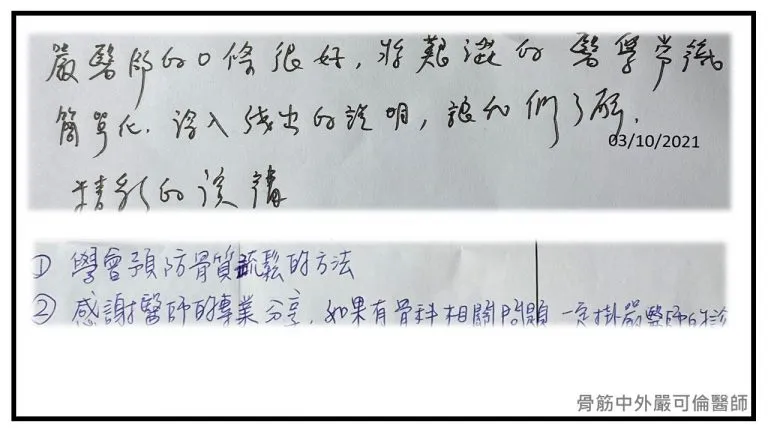 嚴醫師的口條很好，將艱澀的醫學常識
簡單化，深入淺出的說明，讓我們了解，
03/10/2021
精彩的演講
① 學會預防骨質疏鬆的方法
② 感謝醫師的專業分享，如果有骨科相關問題一定掛嚴醫師的診
骨筋中外嚴可倫醫師